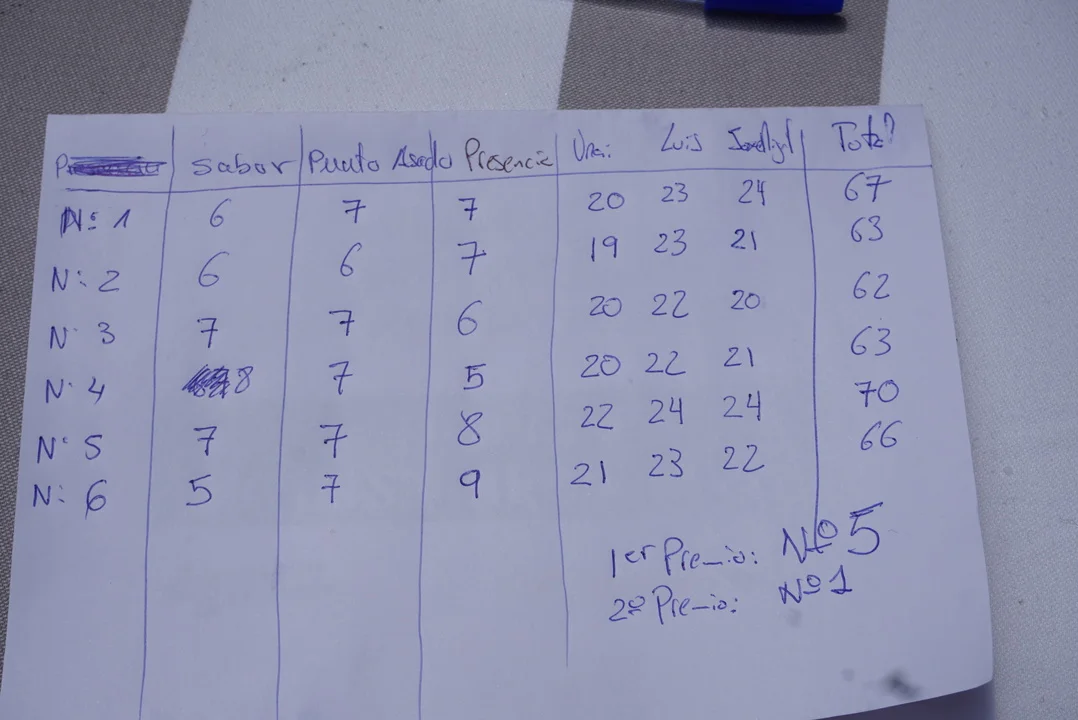 Sabor Punto Asado Presencia Unai Luis Total
Nº 1 6 7 7 20 23 24 67
Nº 2 6 6 7 19 23 21 63
Nº 3 7 7 6 20 22 20 62
Nº 4 8 7 5 20 22 21 63
Nº 5 7 7 8 22 24 24 70
Nº 6 5 7 9 21 23 22 66
1er Premio: Nº 5
2º Premio: Nº 1